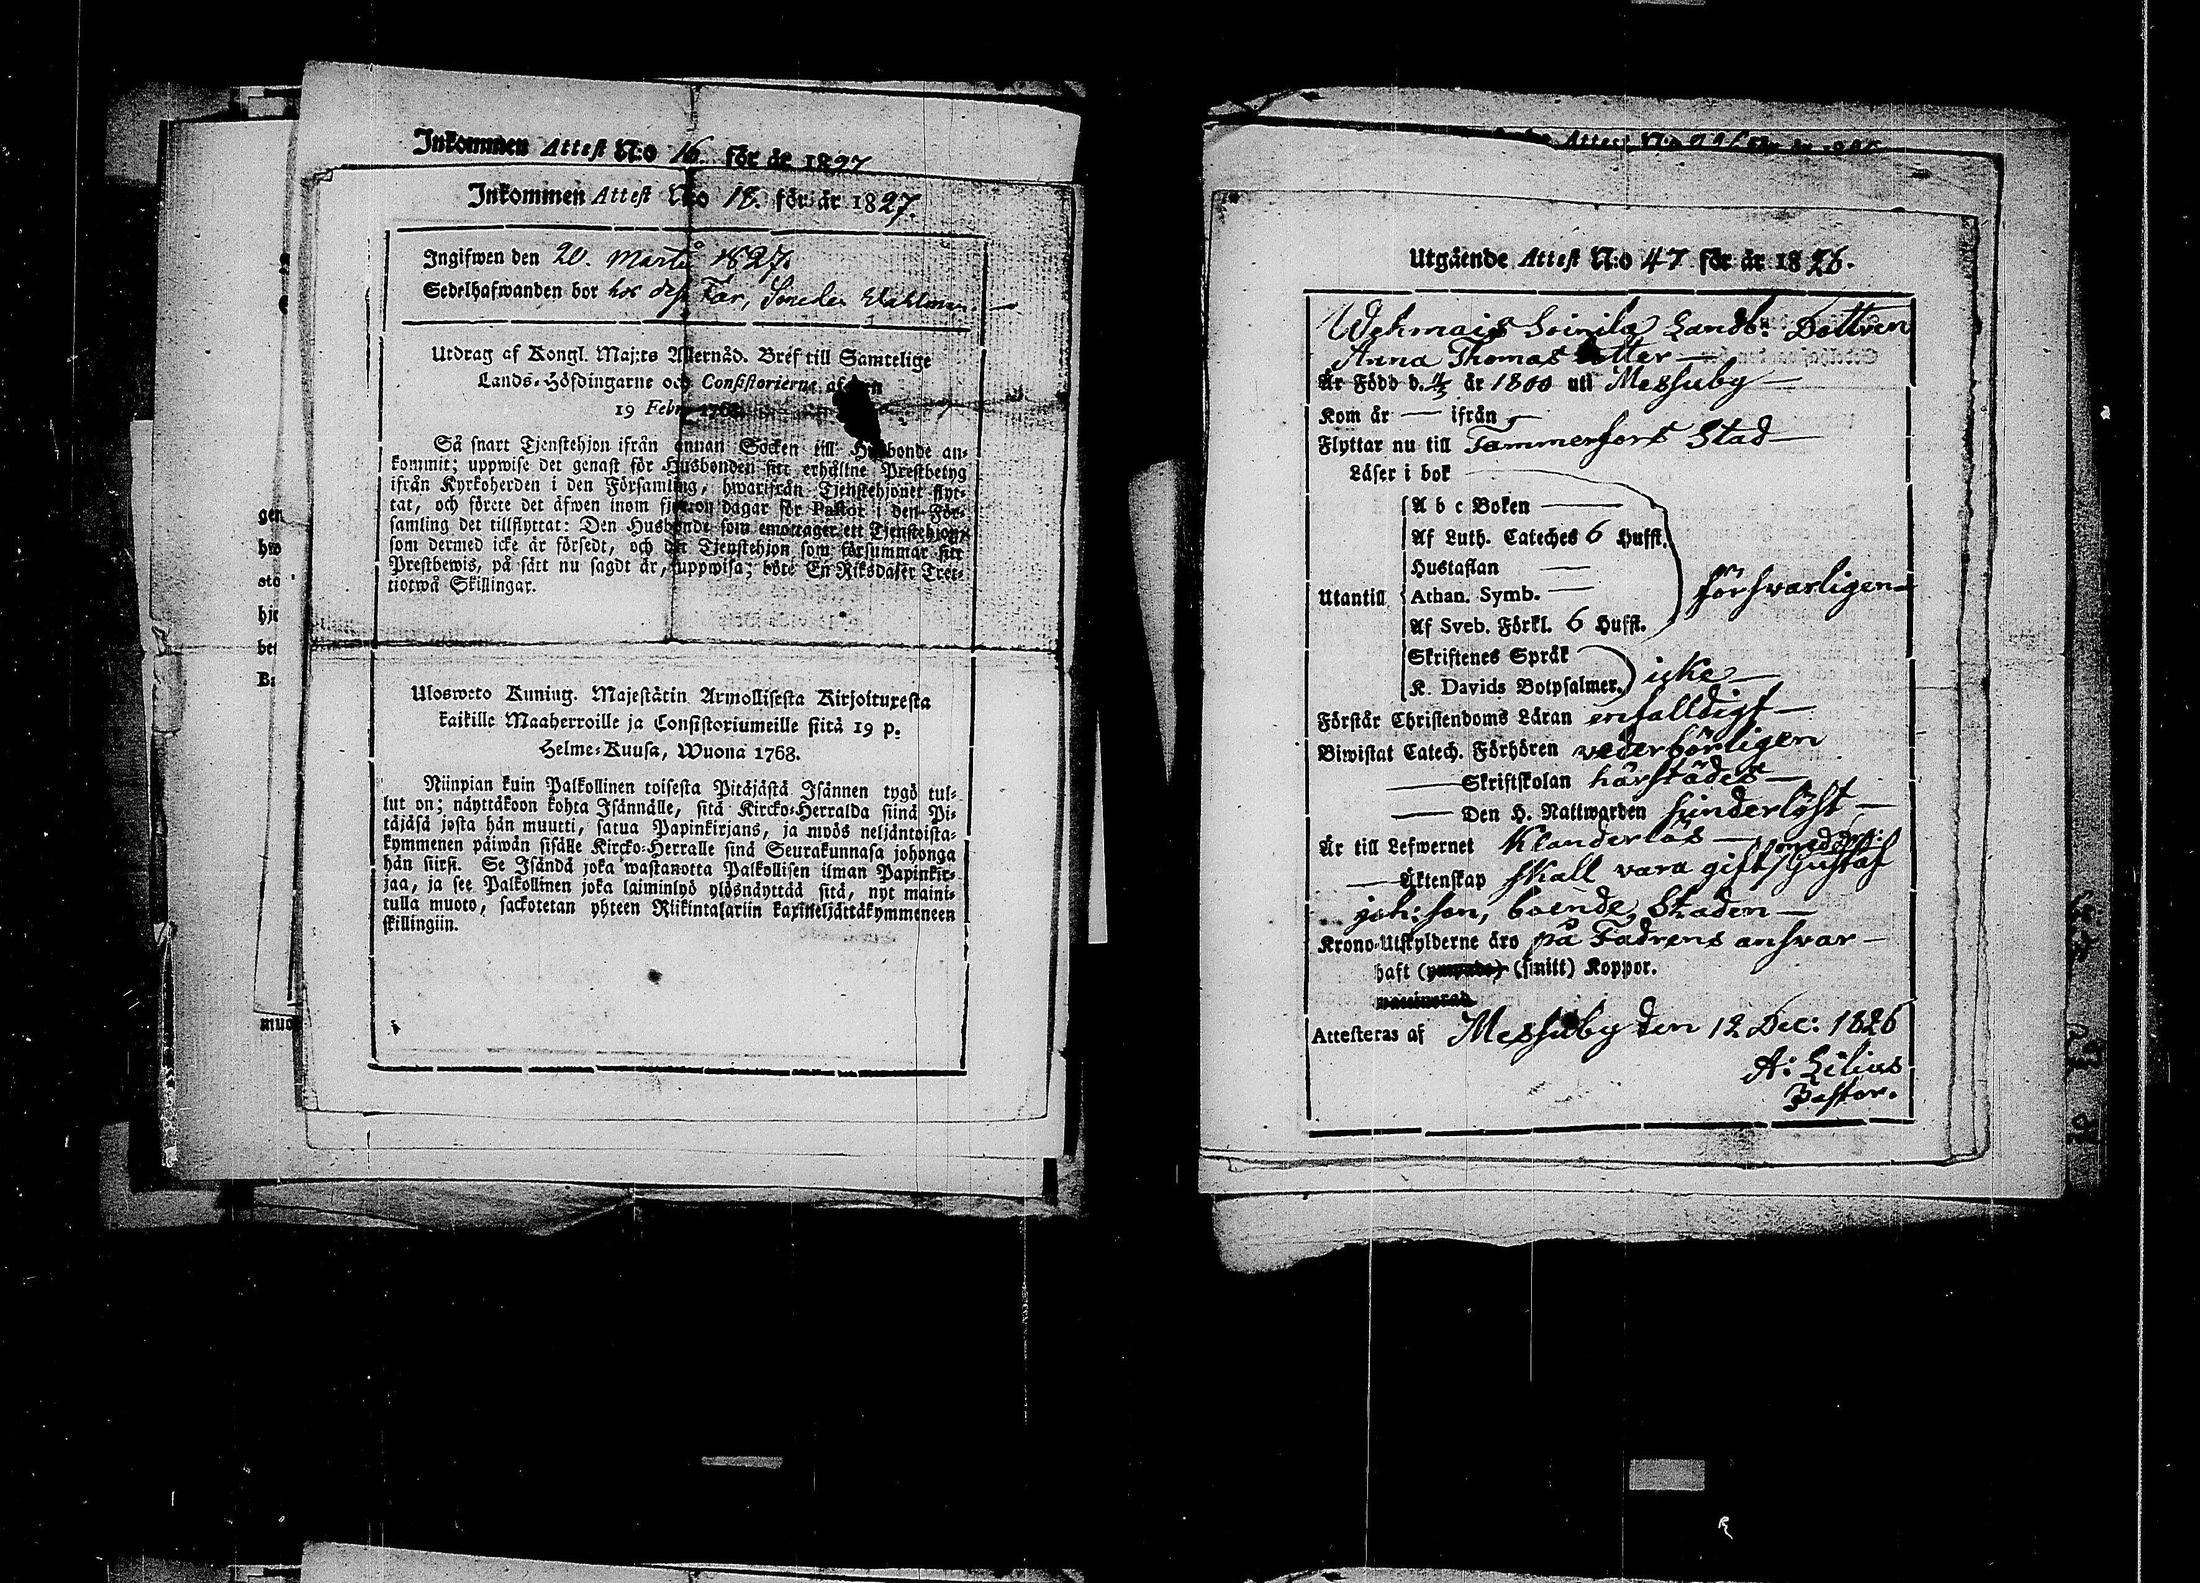 Inkommen Attest N:o 16. för år 1827
Inkommen Attest N:o 18. för år 1827.
Ingifwen den 20. Martii 1827.
Sedelhafwanden bor hos dess Far, Smeden
Utdrag af Kongl. Maj:ts Allernåd. Bref till Samtelige
Lands-Höfdingarne och Consistorierne af den
19 Febr. 1768.
Så snart Tjenstehjon ifrån annan Socken till Husbonde an-
kommit; uppwise det genast för Husbonden sitt erhållne Prestbetyg
ifrån Kyrkoherden i den Församling, hwarifrån Tjenstehjonet flyt-
tat, och förete det äfwen inom fjorton dagar för Pastor i den För-
samling det tillflyttat: Den Husbonde som emottager ett Tjenstehjon,
som dermed icke är försedt, och det Tjenstehjon som försummar sitt
Prestbewis, på sätt nu sagdt är, uppwisa; böte En Riksdaler Tret-
tiotwå Skillingar.
Ulosweto Kuning. Majestätin Armollisesta Kirjoituxesta
kaikille Maaherroille ja Consistoriumeille siitä 19 p.
Helme-Kuusa, Wuona 1768.
Niinpian kuin Palkollinen toisesta Pitäjästä Isännen tygö tul-
lut on; näyttäkoon kohta Isännälle, sitä Kircko-Herralda siinä Pi-
täjäsä josta hän muutti, saatua Papinkirjans, ja myös neljäntoista-
kymmenen päiwän sisälle Kircko-Herralle siinä Seurakunnasa johonga
hän siirsi. Se Isändä joka wastanotta Palkollisen ilman Papinkir-
jaa, ja see Palkollinen joka laiminlyö ylösnäyttää sitä, nyt maini-
tulla muoto, sackotetan yhteen Riikintalariin kaxineljättäkymmeneen
skillingiin.
gen
hw
sto
hje
bet
muo
Utgående Attest N:o 47 för år 1826.
Wehmais Soinila Landb: Dottren
Anna Thomas dotter
Är Född d. år 1800 uti Messuby
Kom år — ifrån —
Flyttar nu till Tammerfors Stad
Läser i bok
A b c Boken
Af Luth. Cateches 6 Hufst.
Hustaflan
Utantill Athan. Symb. försvarligen
Af Sveb. Förkl. 6 Hufst.
Skriftenes Språk
K. Davids Botpsalmer. icke
Förstår Christendoms Läran enfalldigt
Biwistat Catech. Förhören vederbörligen
Skriftskolan härstädes
Den H. Nattwarden hinderlöst
Är till Lefwernet Klanderlös
Äktenskap skall vara gift med Gustaf
joh:son, boende i Staden
Krono-Utskylderne äro på Fadrens ansvar
haft (smitt) Koppor.
Attesteras af Messuby den 12 Dec: 1826
A: Lilius
Pastor.